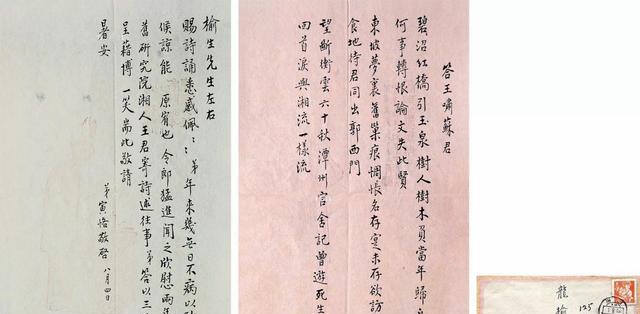 榆生先生左右
賜詩誦悉感佩々弟年來幾無日不病以
候諒能 原宥也 令郎猛進聞之欣慰兩年
舊研究院湘人王君寄詩述往事弟答以三
呈藉博 一笑耑此敬請
暑安
弟寅恪敬啓 八月四日
答王嘯蘇君
碧沼紅橋引玉泉樹人樹木負當年歸
何事轉恨論文失此賢
東坡夢裏舊巢痕惆悵名存寔未存欲訪
食地待君同出郭西門
望斷衡雲六十秋潭州官舍記曾遊死生
回首淚與湘流一樣流
龍榆
125